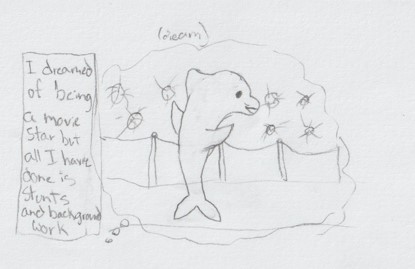 (dream)
I dreamed
of being
a movie
star but
all I have
done is
stunts
and background
work